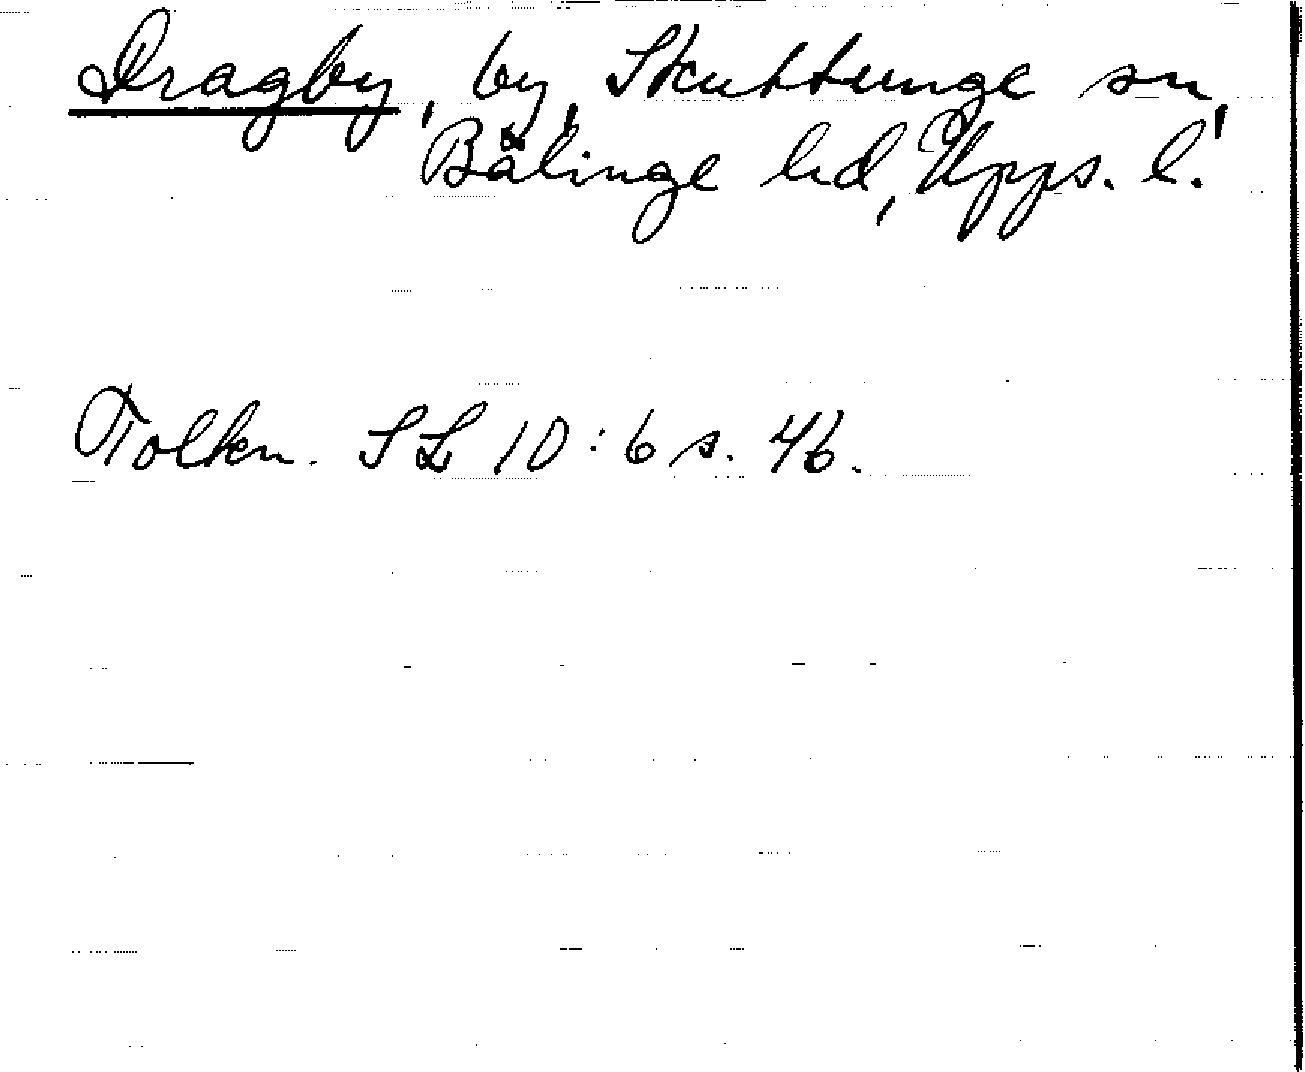 Dragby, by, Skuttunge sn,
Bälinge hd, Upps. l.
Tolkn. SL 10:6 s. 46.